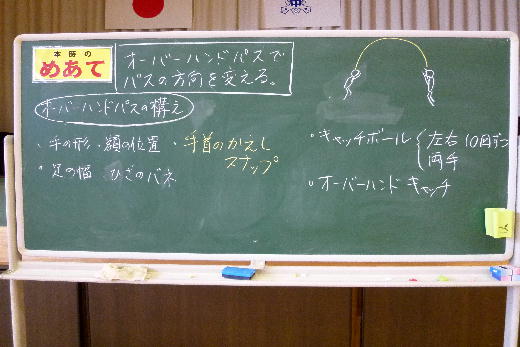 本時の
めあて
オーバーハンドパスで
パスの方向を変える。
オーバーハンドパスの構え
・手の形・額の位置・手首のかえし
スナップ
・足の幅 ひざのバネ
・キャッチボール { 左右 10回ずつ
両手
・オーバーハンドキャッチ